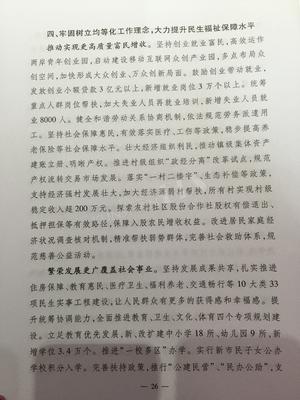 四、牢固树立均等化工作理念，大力提升民生福祉保障水平
推动实现更高质量富民增收。坚持创业就业富民，高效运作
两岸青年创业园，启动建设移动互联网众创产业园，多点布局众
创空间，加快形成大众创业、万众创新局面。鼓励创业带动就业，
发放创业小额贷款3亿元以上，新增就业岗位3万个以上。统筹
重点人群岗位帮扶，加大失业人员再就业培训，新增失业人员就
业8000人。健全和谐劳动关系协商机制，依法规范劳务派遣用
工。坚持社会保障惠民，有效落实医疗、工伤等政策，稳步提高养
老保险等社会保障水平。壮大经济组织利民，推动镇级集体资产
建账立册、明晰产权。推进村级组织“政经分离”改革试点，规范
产权流转交易市场发展。落实“一村二楼宇”、生态补偿等政策，
支持经济强村发展壮大，加大经济薄弱村帮扶，所有村实现村级
稳定收入超200万元。探索农村社区股份合作社股权有偿退出、
抵押担保等有效路径，保障入股农民增收权益。改进居民家庭经
济状况调查核对机制，精准帮扶弱势群体，完善社会救助体系，规
范慈善公益活动。
繁荣发展更广覆盖社会事业。坚持发展成果共享，扎实推进
住房保障、教育惠民、医疗卫生、福利养老、交通畅行等10大类33
项民生实事工程建设，让人民群众有更多的获得感和幸福感。提
升统筹协调能力，全面推进教育、卫生、文化、体育四个专项规划建
设。立足教育优先发展，新、改扩建中小学18所、幼儿园9所，新
增学位3.4万个。推进“一校多区”办学。实行新市民子女公办
学校积分入学。完善扶持政策，推行“公建民营”、“民办公助”，支
— 26 —